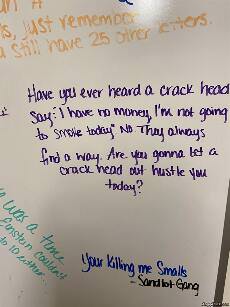 s, just remember
u still have 25 other letters.
Have you ever heard a crack head
Say: "I have no money, I'm not going
to smoke today" No. They always
find a way. Are you gonna let a
crack head out hustle you
today?
was a time
Einstein couldn't
to 10 either.
Your killing me Smalls
- Sandlot Gang